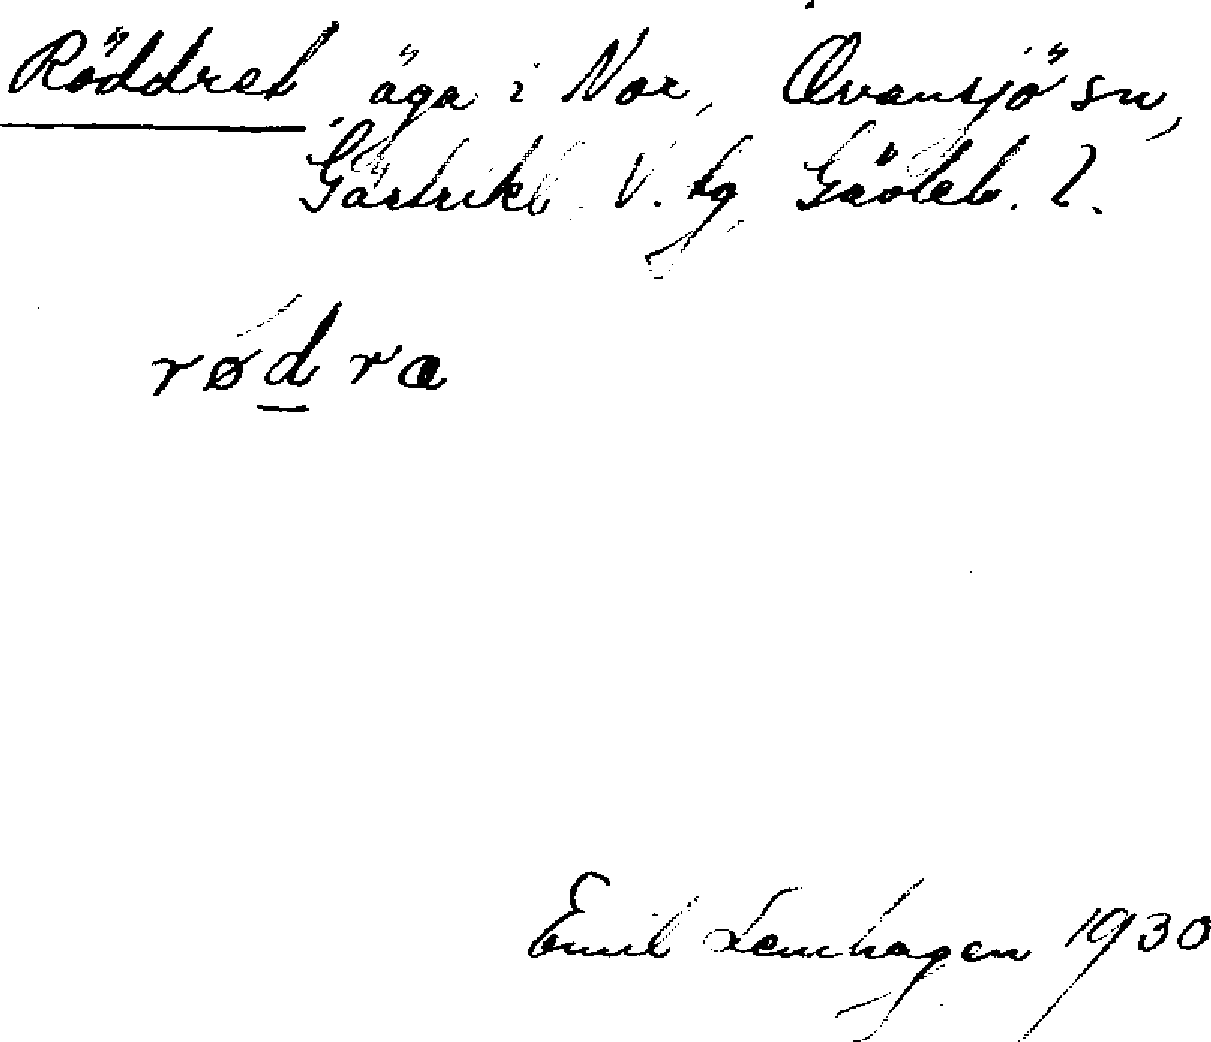 Röddret äga i Nor, Ovansjö sn,
Gästrikl. V. tg Gävleb. l.
rødra
Emil Lenhagen 1930